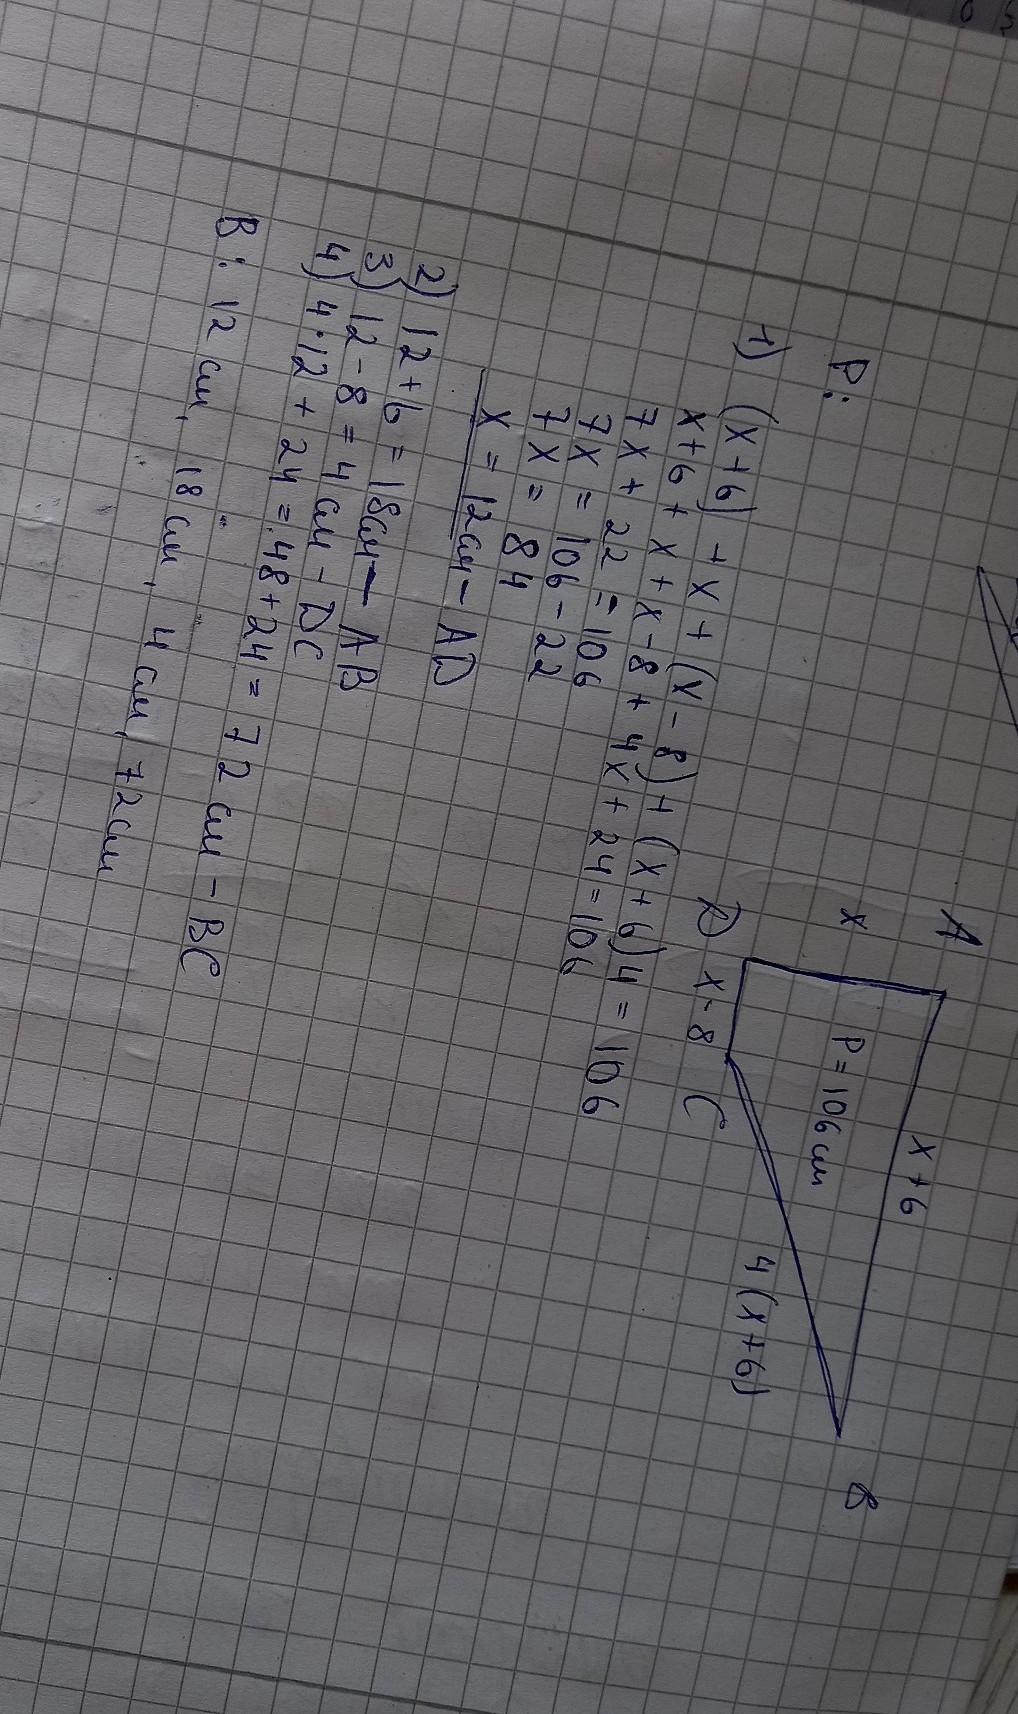 A
x + 6
B
x
P = 106 см
4(x + 6)
D
x - 8
C
Р:
1) (x + 6) + x + (x - 8) + (x + 6)4 = 106
x + 6 + x + x - 8 + 4x + 24 = 106
7x + 22 = 106
7x = 106 - 22
7x = 84
x = 12см - AD
2) 12 + 6 = 18см - AB
3) 12 - 8 = 4 см - DC
4) 4·12 + 24 = 48 + 24 = 72 см - BC
В: 12 см, 18 см, 4 см, 72см